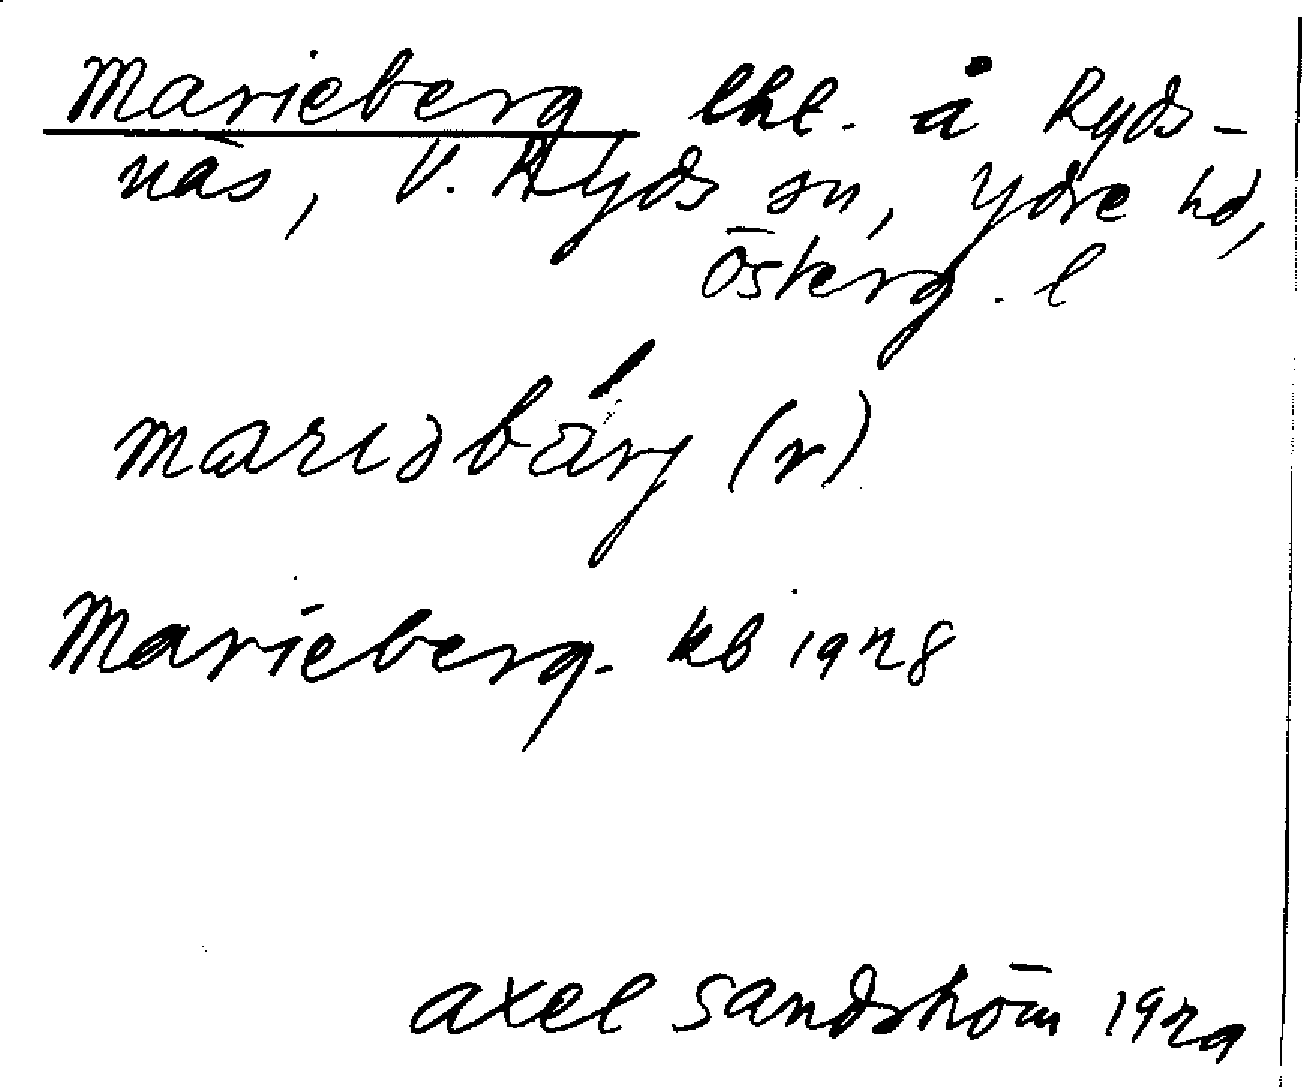 Marieberg lht. å Ryds-
näs, V. Ryds sn, Ydre hd,
Österg. l
marıəbárj (r)
Marieberg. kb 1928
Axel Sandström 1929